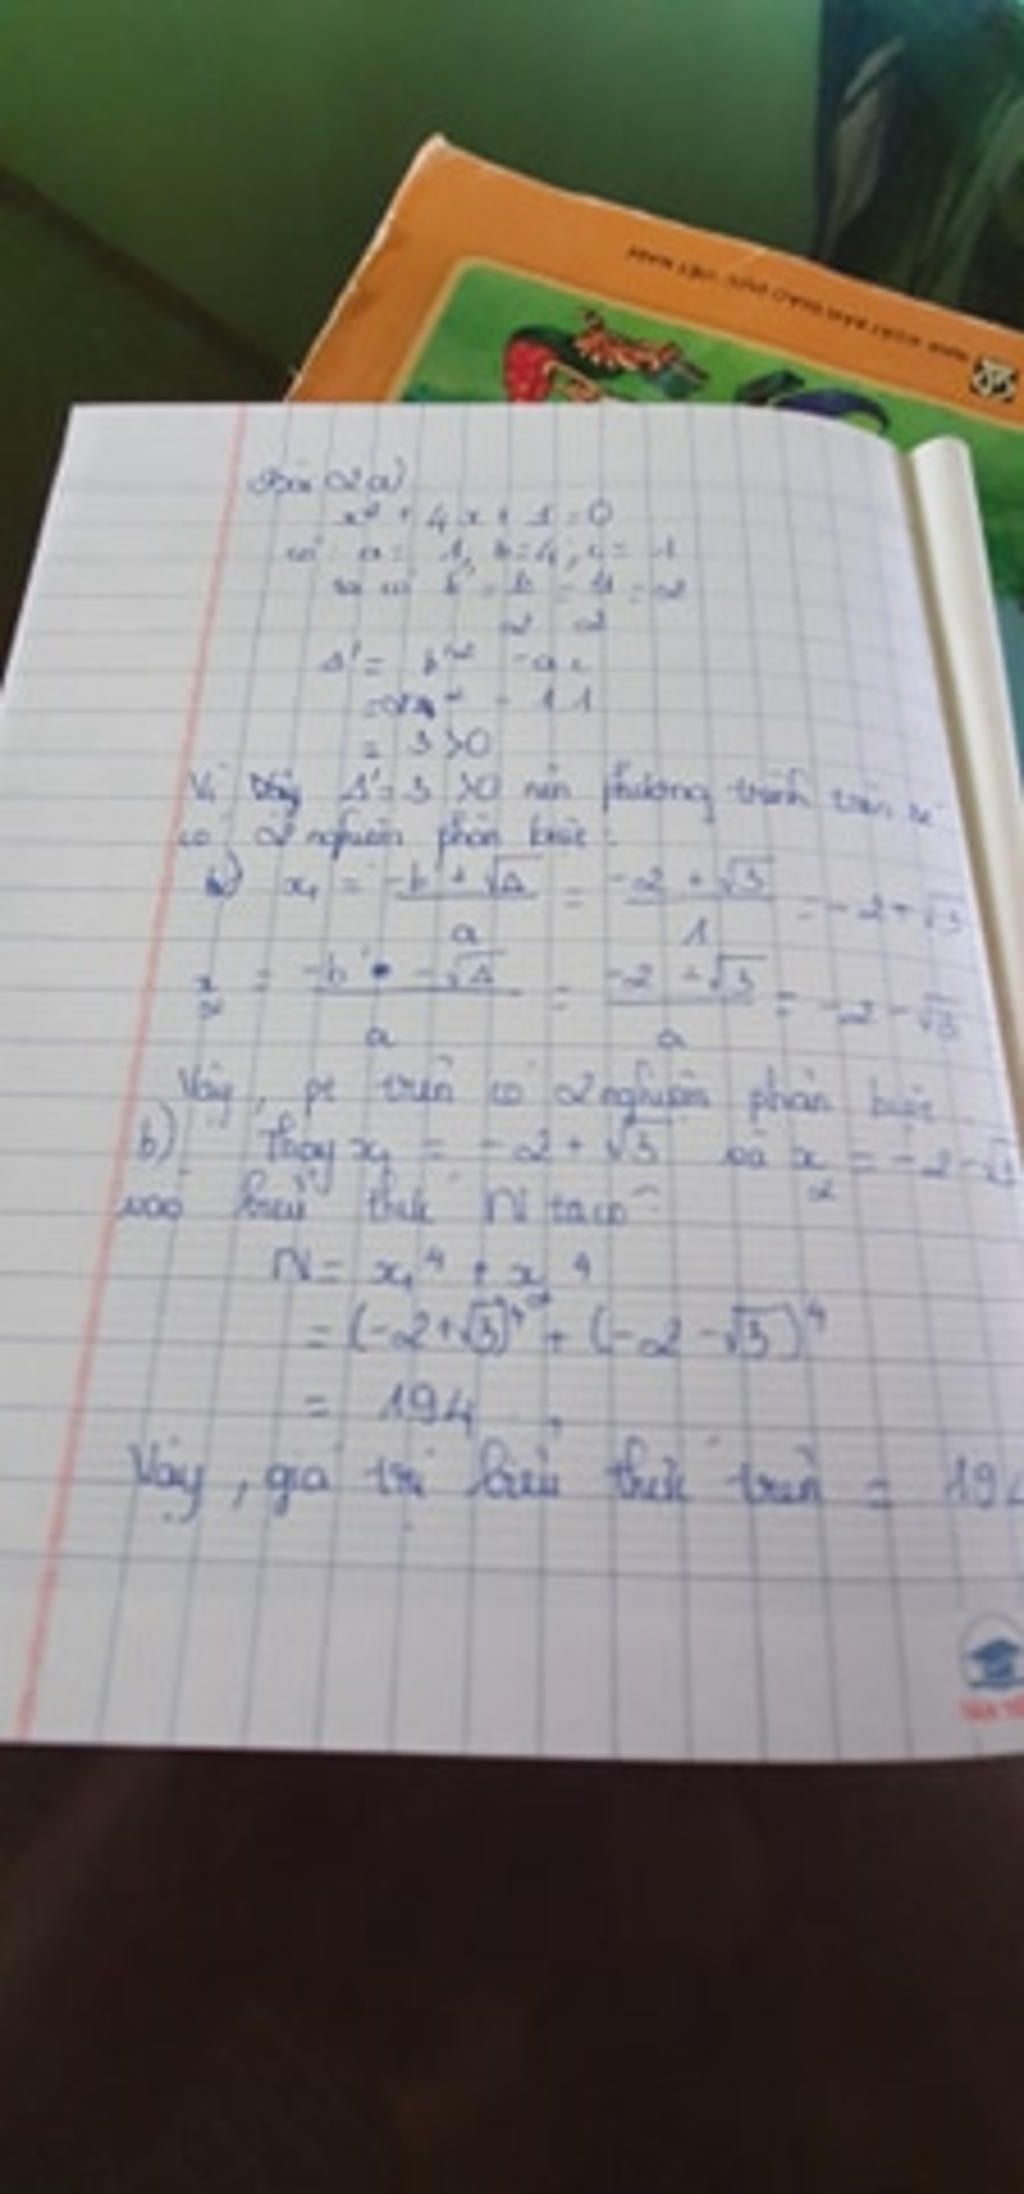 Bài 2 a)
x² + 4x + 1 = 0
có a = 1, b = 4, c = 1
ta có b' = b/2 = 4/2 = 2
Δ' = b'² - ac
= 2² - 1.1
= 3 > 0
Vì Δ' = 3 > 0 nên phương trình trên
có 2 nghiệm phân biệt :
x₁ = -b' + √Δ / a = -2 + √3 / 1 = -2 + √3
x₂ = -b' - √Δ / a = -2 - √3 / a = -2 - √3
Vậy, pt trên có 2 nghiệm phân biệt
b) Thay x₁ = -2 + √3 và x₂ = -2 - √3
vào biểu thức N ta có
N = x₁⁴ + x₂⁴
= (-2 + √3)⁴ + (-2 - √3)⁴
= 194
Vậy, giá trị biểu thức trên = 194